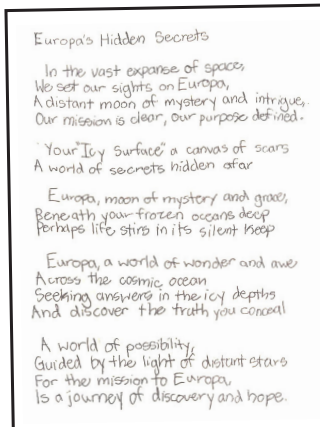 Europa's Hidden Secrets
In the vast expanse of space,
We set our sights on Europa,
A distant moon of mystery and intrigue,
Our mission is clear, our purpose defined.
Your "Icy Surface" a canvas of scars
A world of secrets hidden afar
Europa, moon of mystery and grace,
Beneath your frozen oceans deep
Perhaps life stirs in its silent keep
Europa, a world of wonder and awe
Across the cosmic ocean
Seeking answers in the icy depths
And discover the truth you conceal
A world of possibility,
Guided by the light of distant stars
For the mission to Europa,
Is a journey of discovery and hope.